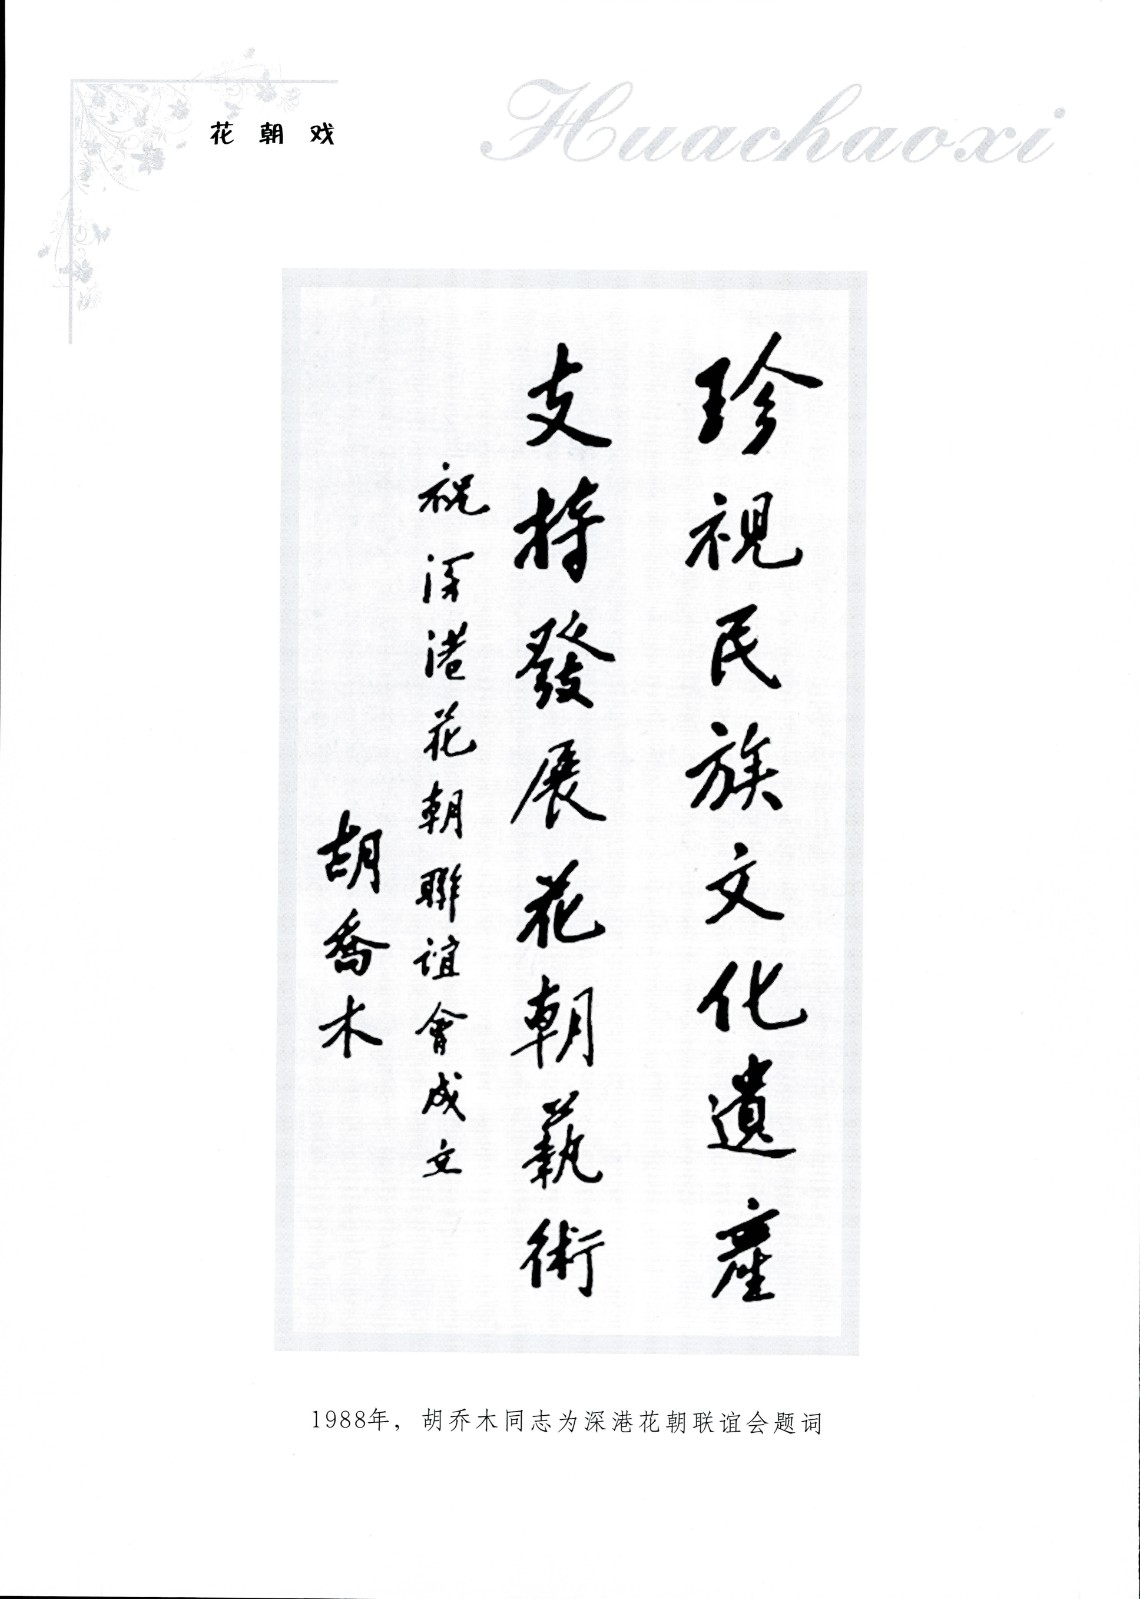 花朝戏
Huachaoxi
珍視民族文化遺產
支持發展花朝藝術
祝深港花朝聯誼會成立
胡喬木
1988年，胡乔木同志为深港花朝联谊会题词